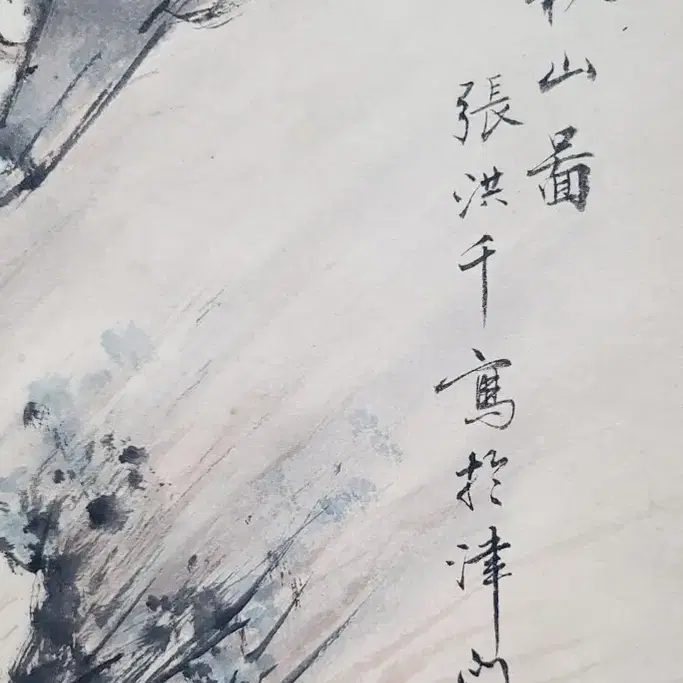 山圖
張洪千寫於津